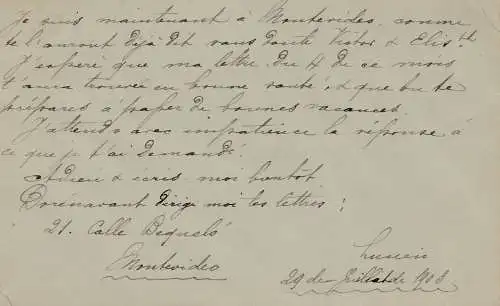 Je suis maintenant à Montevideo, comme
te l'auront déjà dit sans doute Victor & Elis.th
J'espère que ma lettre du 4 de ce mois
t'aura trouvée en bonne santé, & que tu te
prépares à passer de bonnes vacances.
J'attends avec impatience la réponse à
ce que je t'ai demandé.
Adieu & écris moi bientôt
Dorénavant dirige moi tes lettres:
21. Calle
Montevideo
Lucien
29 de Juillet de 1908